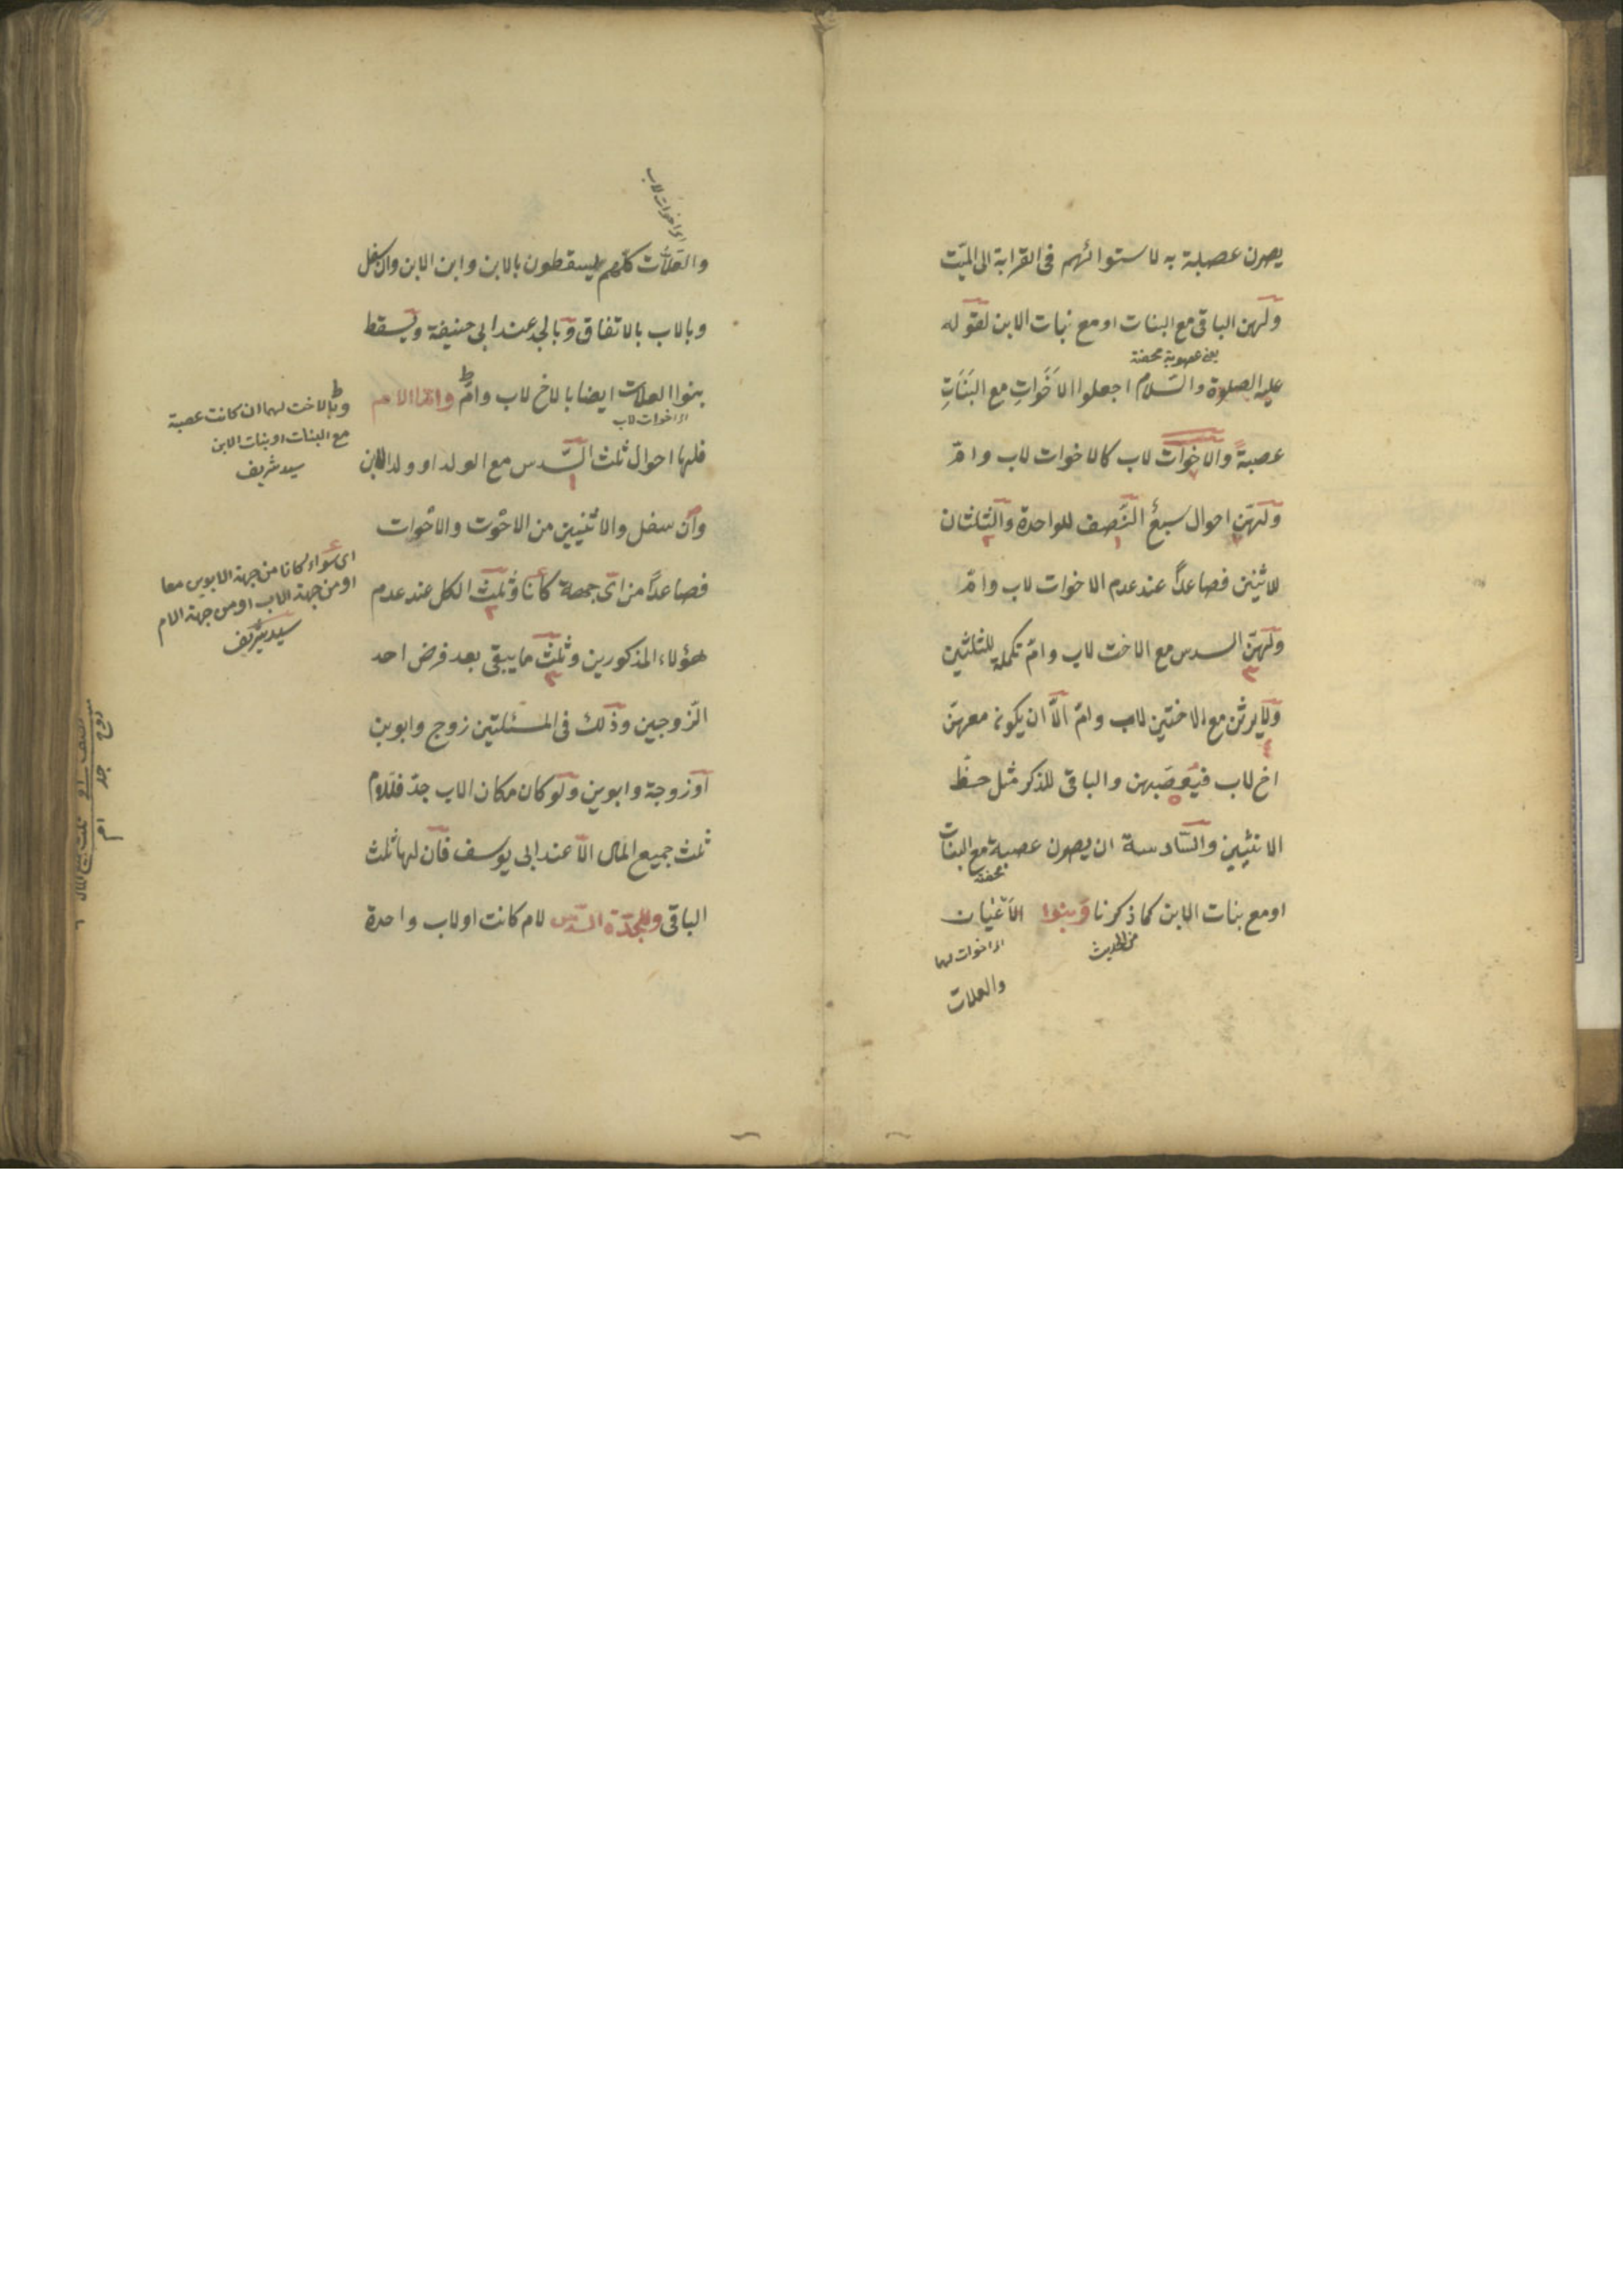 يصرن عصبة به لاستوائهم فى القرابة الى الميّت
ولهن الباقى مع البنات او مع بنات الابن لقوله
يعنى عصوبة محضة
عليه الصلوة والسّلام اجعلوا الاَخَواتِ مع البَنَاتِ
عصبةً والاخوات لاب كالاخوات لاب وامّ
ولهنّ احوال سبعٌ النّصف للواحدة والثلثان
١ ٢
للاثنين فصاعداً عند عدم الاخوات لاب وامّ
ولهنّ السدس مع الاخت لاب وامّ تكملة للثلثين
٣
ولا يرثن مع الاختين لاب وامّ الاّ ان يكون معهنّ
٤
اخ لاب فيعصّبهن والباقى للذكر مثل حظّ
٥
الانثيين والسّادسة ان يصرن عصبة مع البنات
محضة
او مع بنات الابن كما ذكرنا وبنوا الاَعْيان
من الحديث
اى اخوات لهما
والعلات
اى اخوات لاب
والعلاّت كلّهم يسقطون بالابن وابن الابن وان سفل
وبالاب بالاتفاق وبالجد عند ابى حنيفة ويسقط
بنوا العلات ايضا بالاخ لاب وامّ وامّا الام
اى اخوات لاب
فلها احوال ثلث السّدس مع الولد او ولد الابن
١
وان سفل والاثنين من الاخوت والاخوات
فصاعدًا من اىّ جهة كانا وثلث الكل عند عدم
٢
هؤلاء المذكورين وثلث ما يبقى بعد فرض احد
٣
الزّوجين وذلك فى المسئلتين زوج وابوين
او زوجة وابوين ولو كان مكان الاب جدّ فللام
ثلث جميع المال الاّ عند ابى يوسف فان لها ثلث
الباقى وللجدّة السّدس لام كانت او لاب واحدة
وبالاخت لهما ان كانت عصبة
مع البنات او بنات الابن
سيد شريف
اى سواء كانا من جهة الابوين معا
او من جهة الاب او من جهة الام
سيد شريف
زوج جد ام